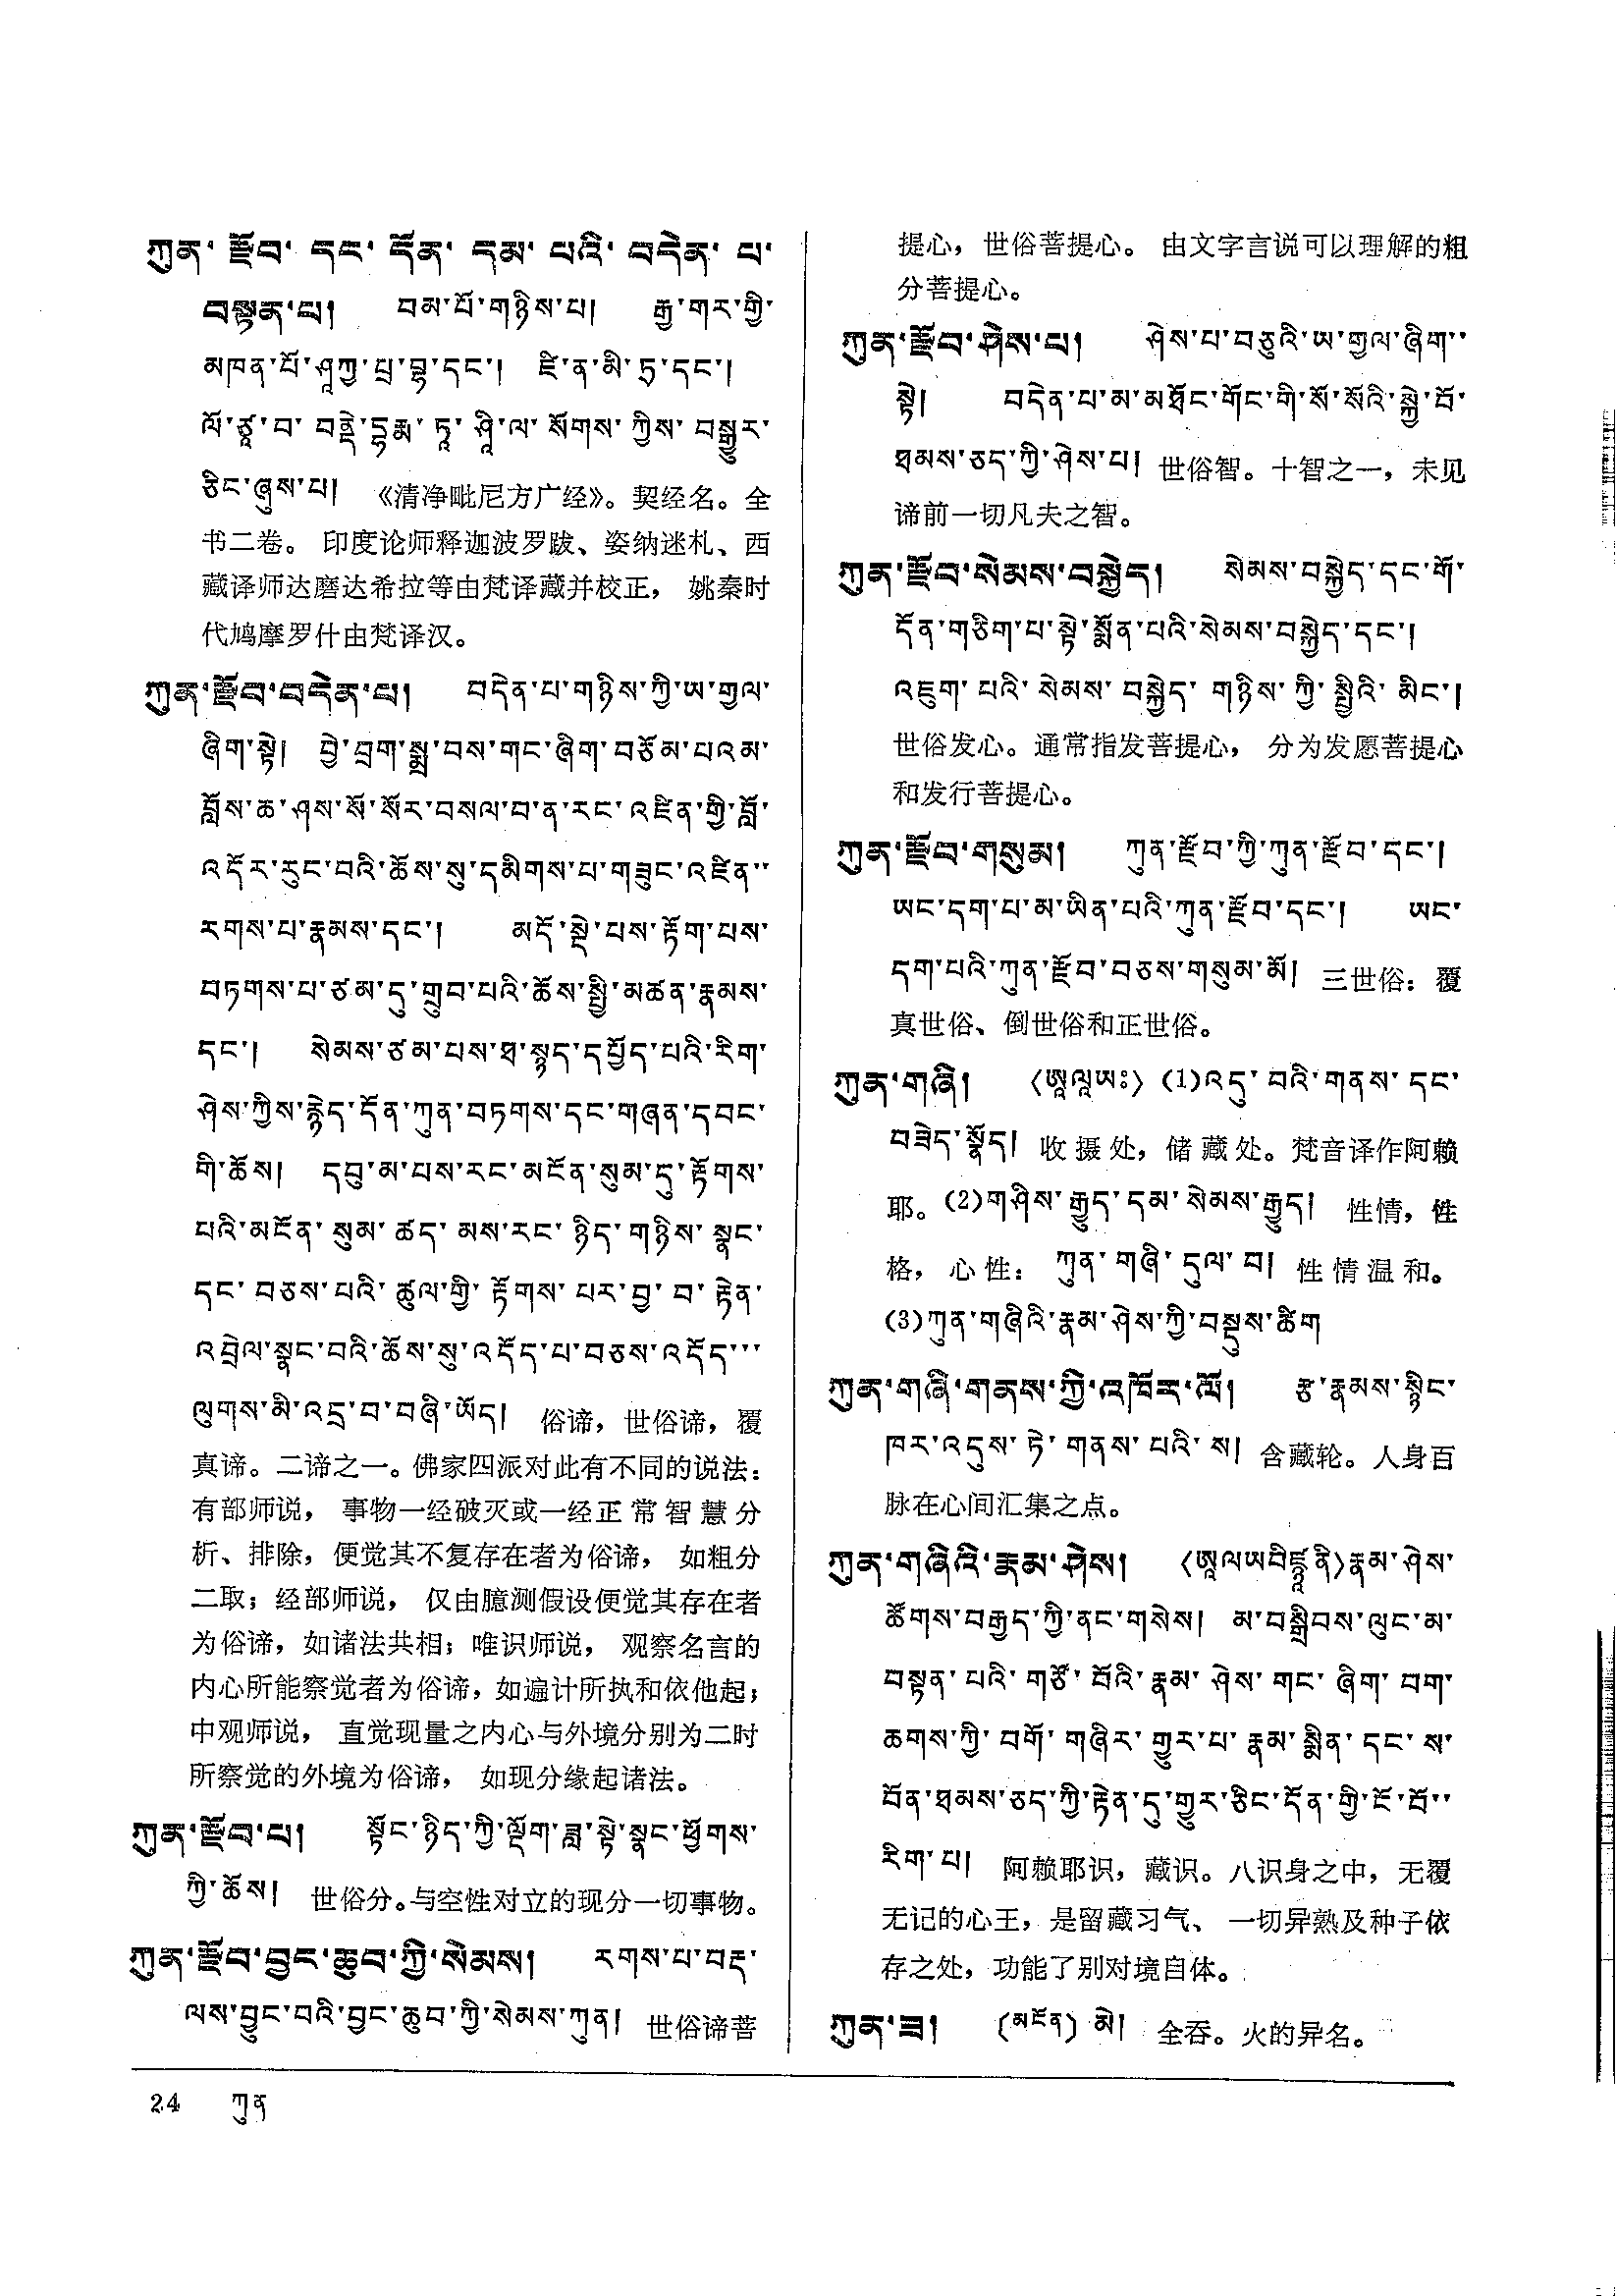 ཀུན་ རྫོབ་ དང་ དོན་ དམ་ པའི་ བདེན་ པ་
བསྟན་པ། བམ་པོ་གཉིས་པ། རྒྱ་གར་གྱི་
མཁན་པོ་ཤཱཀྱ་པྲ་བྷ་དང་། ཛི་ན་མི་ཏྲ་དང་།
ལོ་ཙཱ་བ་ བནྡེ་དྷརྨ་ ཏཱ་ ཤཱི་ལ་ སོགས་ ཀྱིས་ བསྒྱུར་
ཅིང་ཞུས་པ། 《清净毗尼方广经》。契经名。全
书二卷。 印度论师释迦波罗跋、姿纳迷札、西
藏译师达磨达希拉等由梵译藏并校正， 姚秦时
代鸠摩罗什由梵译汉。
ཀུན་རྫོབ་བདེན་པ། བདེན་པ་གཉིས་ཀྱི་ཡ་གྱལ་
ཞིག་སྟེ། བྱེ་བྲག་སྨྲ་བས་གང་ཞིག་བཅོམ་པའམ་
བློས་ཆ་ཤས་སོ་སོར་བསལ་བ་ན་རང་འཛིན་གྱི་བློ་
འདོར་རུང་བའི་ཆོས་སུ་དམིགས་པ་གཟུང་འཛིན་་
རགས་པ་རྣམས་དང་། མདོ་སྡེ་པས་རྟོག་པས་
བཏགས་པ་ཙམ་དུ་གྲུབ་པའི་ཆོས་སྤྱི་མཚན་རྣམས་
དང་། སེམས་ཙམ་པས་ཐ་སྙད་དཔྱོད་པའི་རིག་
ཤེས་ཀྱིས་རྙེད་དོན་ཀུན་བཏགས་དང་གཞན་དབང་
གི་ཆོས། དབུ་མ་པས་རང་མངོན་སུམ་དུ་རྟོགས་
པའི་མངོན་ སུམ་ ཚད་ མས་རང་ ཉིད་ གཉིས་ སྣང་
དང་ བཅས་པའི་ ཚུལ་གྱི་ རྟོགས་ པར་བྱ་ བ་ རྟེན་
འབྲེལ་སྣང་བའི་ཆོས་སུ་འདོད་པ་བཅས་འདོད་་་
ལུགས་མི་འདྲ་བ་བཞི་ཡོད། 俗谛，世俗谛，覆
真谛。二谛之一。佛家四派对此有不同的说法：
有部师说， 事物一经破灭或一经正常智慧分
析、排除，便觉其不复存在者为俗谛， 如粗分
二取；经部师说， 仅由臆测假设便觉其存在者
为俗谛，如诸法共相；唯识师说， 观察名言的
内心所能察觉者为俗谛，如遍计所执和依他起；
中观师说， 直觉现量之内心与外境分别为二时
所察觉的外境为俗谛， 如现分缘起诸法。
ཀུན་རྫོབ་པ། སྟོང་ཉིད་ཀྱི་ལྡོག་ཟླ་སྟེ་སྣང་ཕྱོགས་
ཀྱི་ཆོས། 世俗分。与空性对立的现分一切事物。
ཀུན་རྫོབ་བྱང་ཆུབ་ཀྱི་སེམས། རགས་པ་བརྡ་
ལས་བྱུང་བའི་བྱང་ཆུབ་ཀྱི་སེམས་ཀུན། 世俗谛菩
提心，世俗菩提心。 由文字言说可以理解的粗
分菩提心。
ཀུན་རྫོབ་ཤེས་པ། ཤེས་པ་བཅུའི་ཡ་གྱལ་ཞིག་་
སྟེ། བདེན་པ་མ་མཐོང་གོང་གི་སོ་སོའི་སྐྱེ་བོ་
ཐམས་ཅད་ཀྱི་ཤེས་པ། 世俗智。十智之一，未见
谛前一切凡夫之智。
ཀུན་རྫོབ་སེམས་བསྐྱེད། སེམས་བསྐྱེད་དང་གོ་
དོན་གཅིག་པ་སྟེ་སྨོན་པའི་སེམས་བསྐྱེད་དང་།
འཇུག་ པའི་ སེམས་ བསྐྱེད་ གཉིས་ ཀྱི་ སྤྱིའི་ མིང་།
世俗发心。通常指发菩提心， 分为发愿菩提心
和发行菩提心。
ཀུན་རྫོབ་གསུམ། ཀུན་རྫོབ་ཀྱི་ཀུན་རྫོབ་དང་།
ཡང་དག་པ་མ་ཡིན་པའི་ཀུན་རྫོབ་དང་། ཡང་
དག་པའི་ཀུན་རྫོབ་བཅས་གསུམ་མོ། 三世俗：覆
真世俗、倒世俗和正世俗。
ཀུན་གཞི། 〈ཨཱལཱཡཿ〉(1)འདུ་ བའི་གནས་ དང་
བཟེད་སྣོད། 收摄处，储藏处。梵音译作阿赖
耶。(2)གཤིས་རྒྱུད་དམ་སེམས་རྒྱུད། 性情，性
格，心性： ཀུན་ གཞི་ དུལ་ བ། 性情温和。
(3)ཀུན་གཞིའི་རྣམ་ཤེས་ཀྱི་བསྡུས་ཚིག
ཀུན་གཞི་གནས་ཀྱི་འཁོར་ལོ། རྩ་རྣམས་སྙིང་
ཁར་འདུས་ ཏེ་ གནས་ པའི་ ས། 含藏轮。人身百
脉在心间汇集之点。
ཀུན་གཞིའི་རྣམ་ཤེས། 〈ཨཱལཡབིཛྙཱནི〉རྣམ་ཤེས་
ཚོགས་བརྒྱད་ཀྱི་ནང་གསེས། མ་བསྒྲིབས་ལུང་མ་
བསྟན་ པའི་ གཙོ་ བོའི་ རྣམ་ ཤེས་ གང་ ཞིག་ བག་
ཆགས་ཀྱི་ བགོ་ གཞིར་ གྱུར་པ་ རྣམ་ སྨིན་ དང་ ས་
བོན་ཐམས་ཅད་ཀྱི་རྟེན་དུ་གྱུར་ཅིང་དོན་གྱི་ངོ་བོ་་
རིག་པ། 阿赖耶识，藏识。八识身之中，无覆
无记的心王，是留藏习气、 一切异熟及种子依
存之处，功能了别对境自体。
ཀུན་ཟ། (མངོན) མེ། 全吞。火的异名。
24 ཀུན